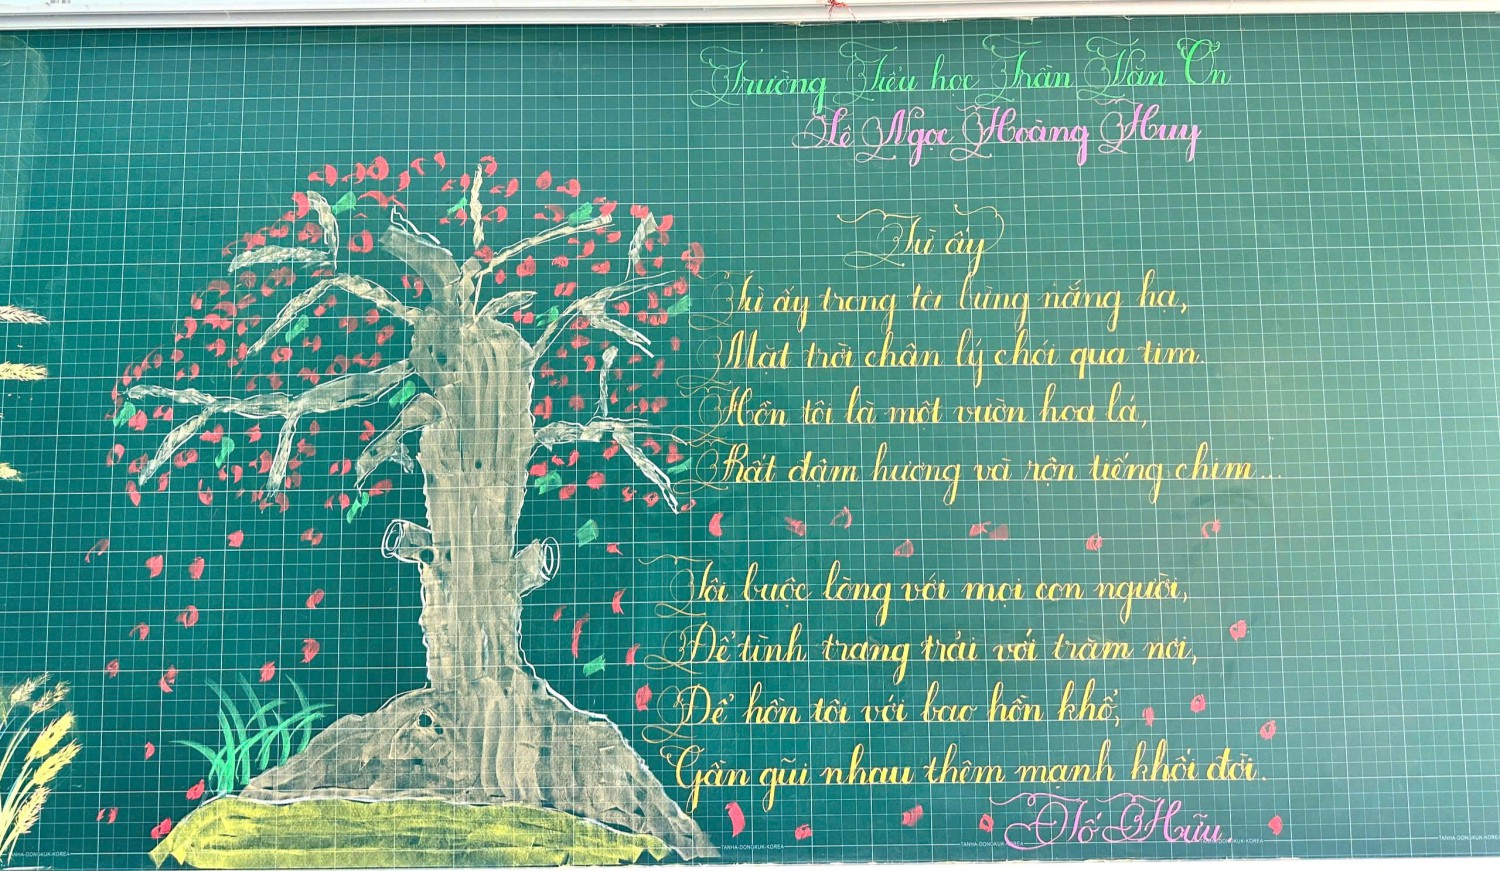 Trường Tiểu học Trần Văn Ơn
Lê Ngọc Hoàng Huy
Từ ấy
Từ ấy trong tôi bừng nắng hạ,
Mặt trời chân lý chói qua tim.
Hồn tôi là một vườn hoa lá,
Rất đậm hương và rộn tiếng chim...
Tôi buộc lòng với mọi con người,
Để tình trang trải với trăm nơi,
Để hồn tôi với bao hồn khổ,
Gần gũi nhau thêm mạnh khối đời.
Tố Hữu
TANHA-DONGKUK-KOREA
TANHA-DONGKUK-KOREA
TANHA-DONGKUK-KOREA
TANHA-DONGKUK-KOREA
TANHA-DONGKUK-KOREA